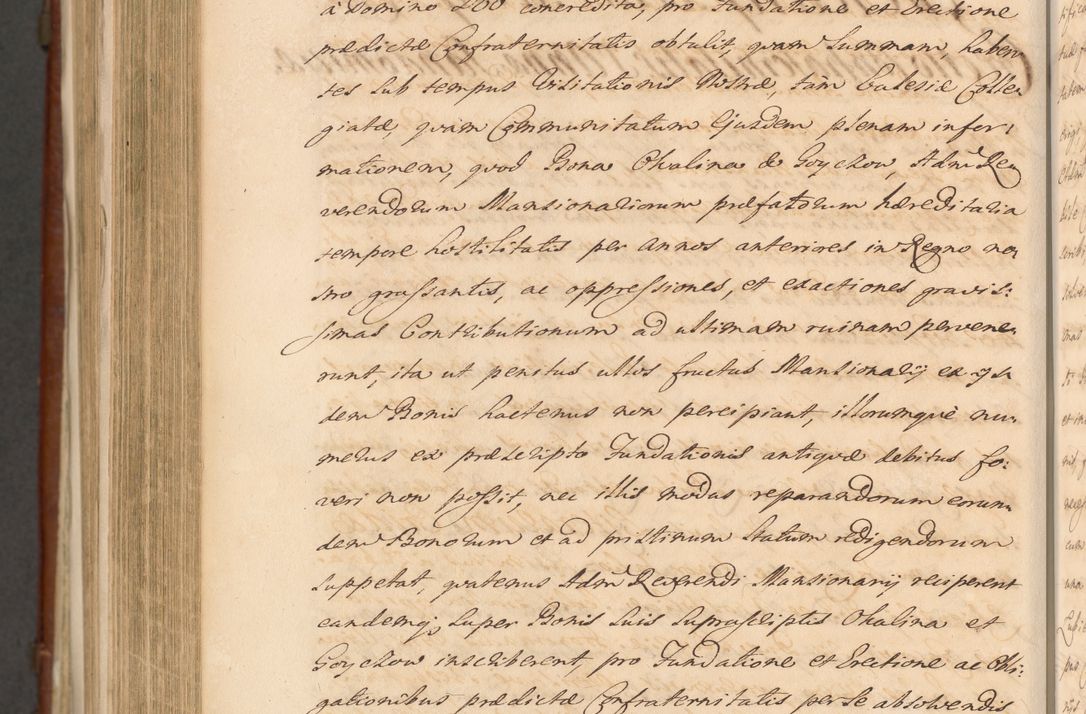 a Domino 200 concredita, pro Fundatione et Erectione
prædictæ Confraternitatis obtulit, quam Summam, haben
tes sub tempus Visitationis Nostræ, tàm Ecclesiæ Colle
giatæ, quam Communitatum Ejusdem plenam infor:
mationem, quod Bona Okalina & Goyczow, Admd Re
verendorum Mansionariorum præfatorum hæreditaria
tempore hostilitatis per annos anteriores in Regno no
stro grassantis, ac oppressiones, et exactiones gravis:
simas Contributionum ad ultimam ruinam pervene
runt, ita ut penitus ullos fructus Mansionarij ex ijs
dem Bonis hactenus non percipiant, illorumquè nu
merus ex præscripto Fundationis antiquæ debitus fo:
veri non possit, nec illis modus reparandorum eorun
dem Bonorum et ad pristinum Statum redigendorum
suppetat, quatenus Admd Reverendi Mansionarij reciperent
eandemq; super Bonis suis suprascriptis Okalina et
Goyczow inscriberent, pro Fundatione et Erectione ac Obli:
gationibus prædictæ Confraternitatis per se absolvendis